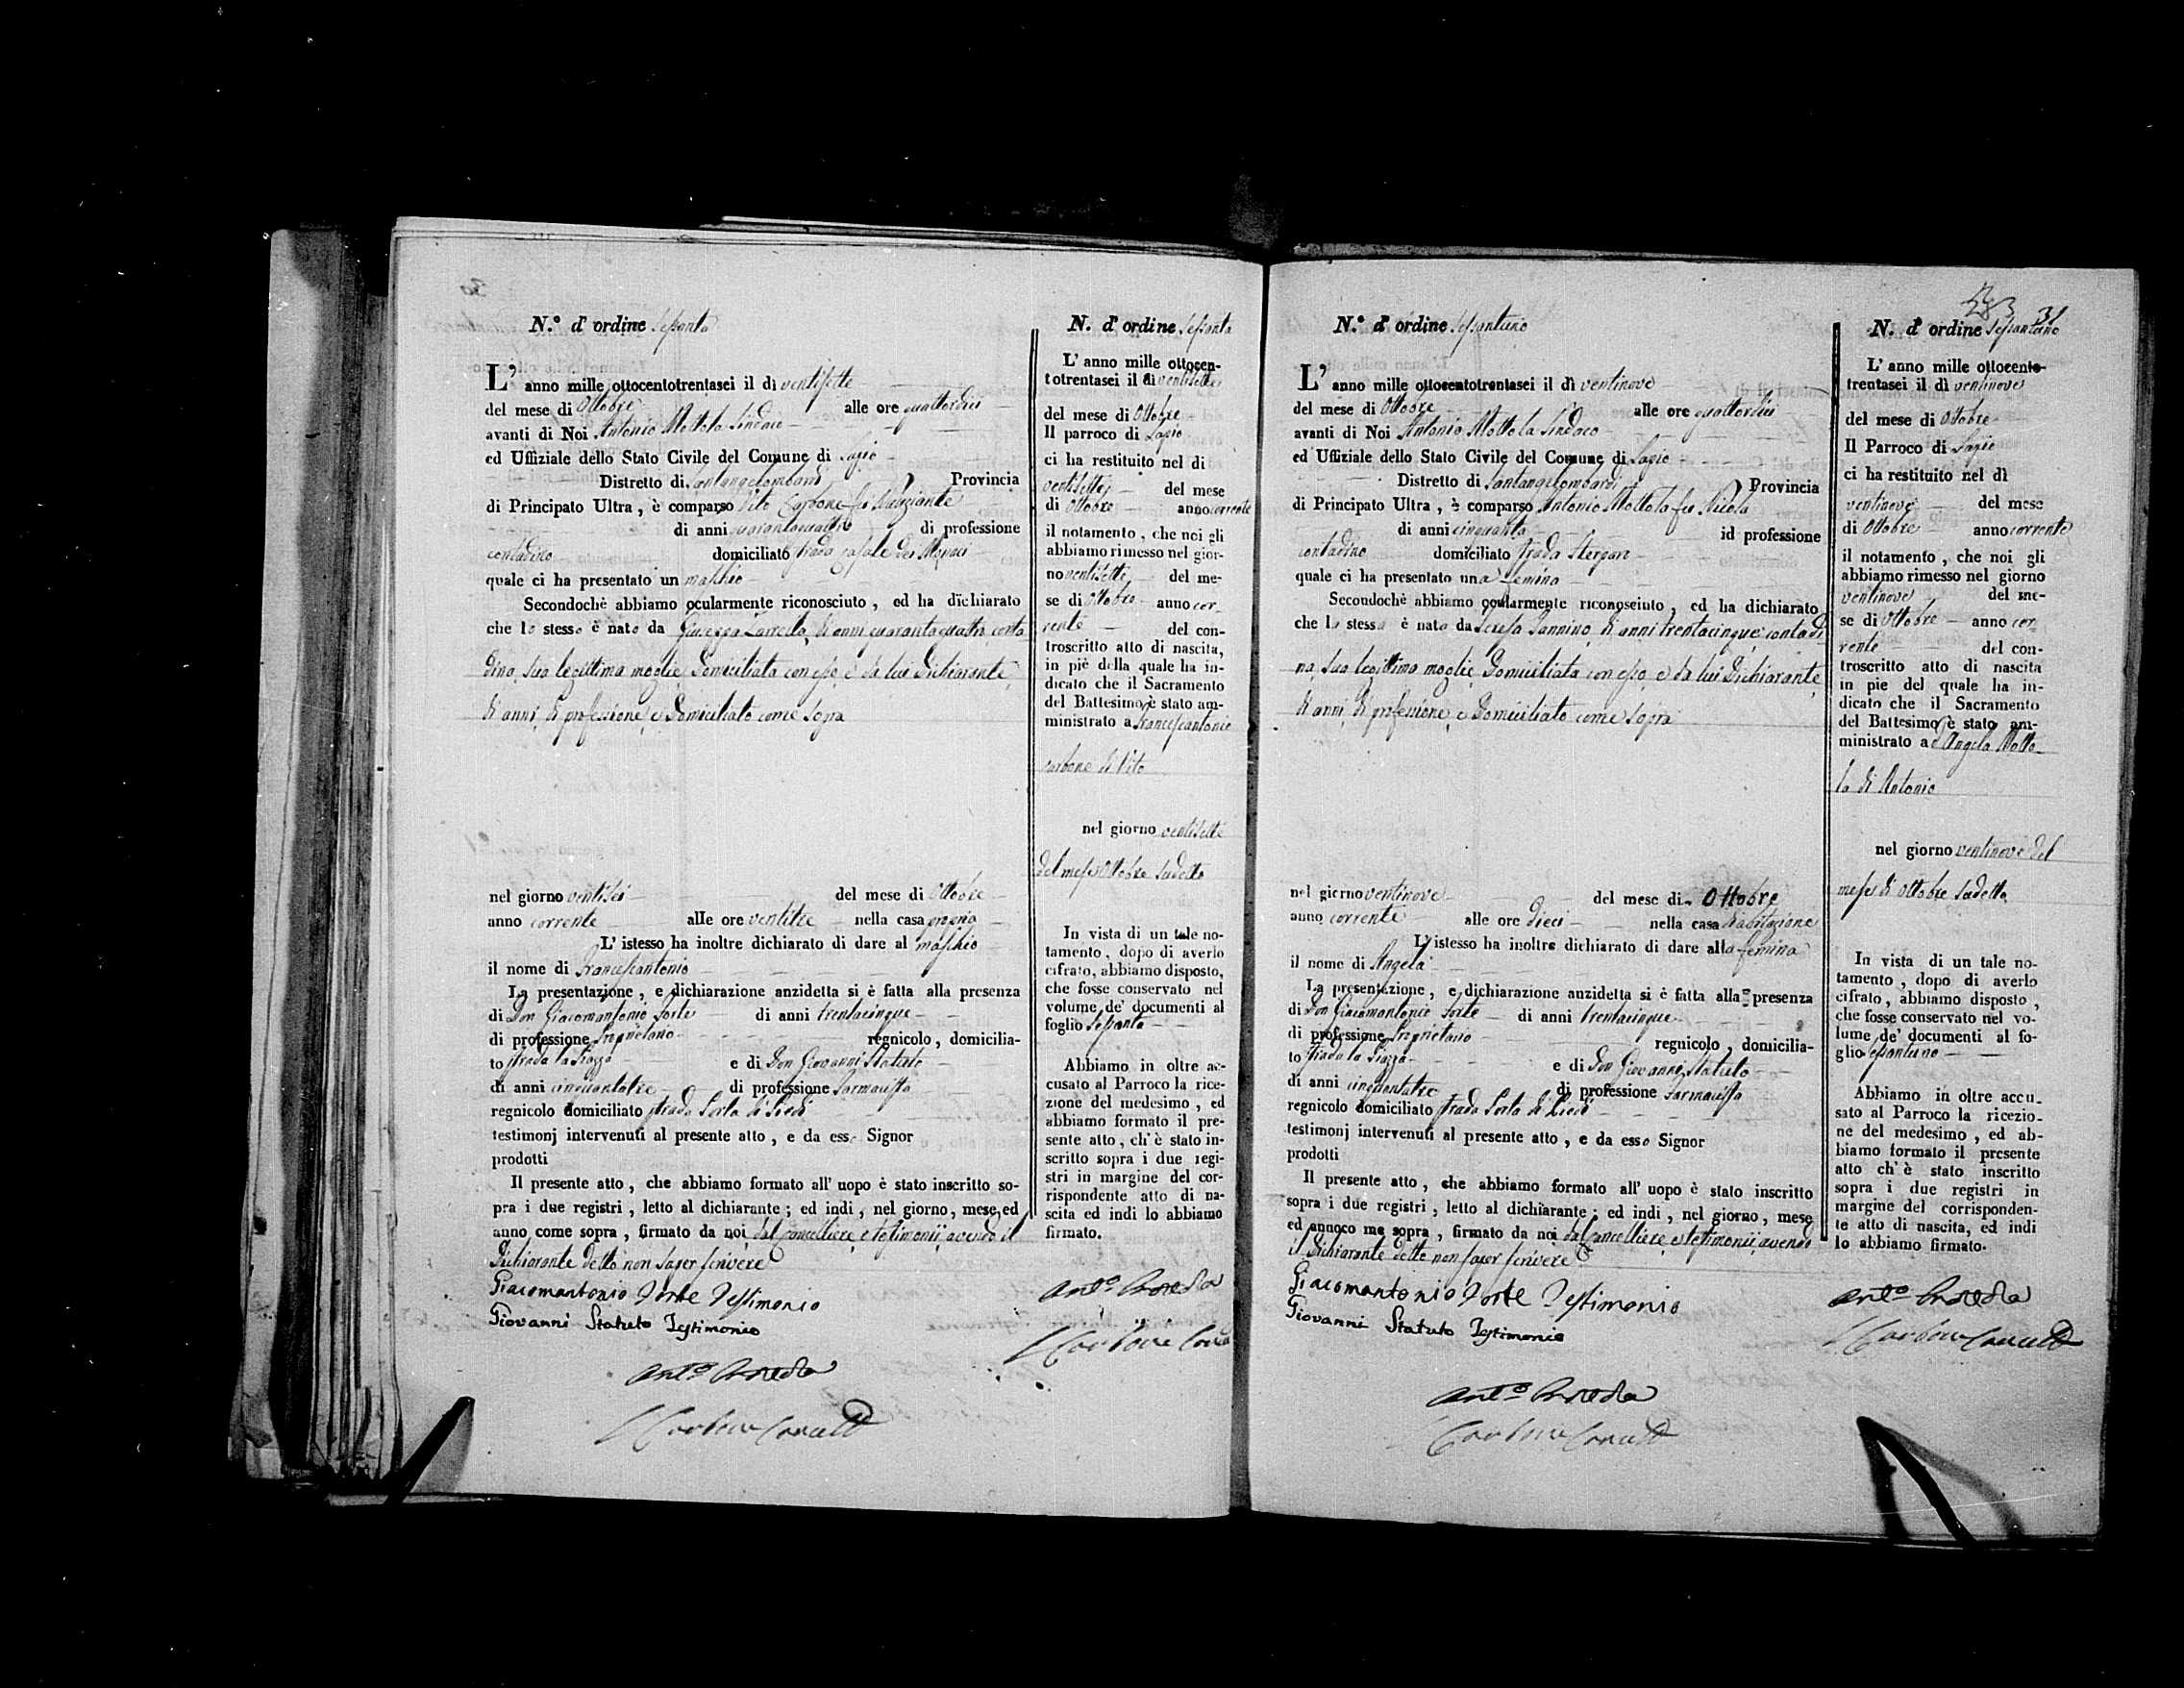 N.º d' ordine sessanta
L' anno mille ottocentotrentasei il dì ventisette
del mese di Ottobre alle ore quattordici
avanti di Noi Antonio Mottola Sindaco
ed Uffiziale dello Stato Civile del Comune di Lapio
Distretto di Santangelombardi Provincia
di Principato Ultra , è comparso Vito Carbone fu
di anni quarantaquattro di professione
contadino domiciliato strada casale dei Monaci
quale ci ha presentato un maschio
Secondochè abbiamo ocularmente riconosciuto , ed ha dichiarato
che lo stesso è nato da Giuseppa di anni quarantaquattro conta
dina, sua legittima moglie, domiciliata con esso, e da lui Dichiarante
di anni, di professione, e Domiciliato come sopra
nel giorno ventisei del mese di Ottobre
anno corrente alle ore ventitre nella casa propria
L' istesso ha inoltre dichiarato di dare al maschio
il nome di Francescantonio
La presentazione , e dichiarazione anzidetta si è fatta alla presenza
di Don Giacomantonio Forte di anni trentacinque
di professione Proprietario regnicolo , domicilia-
to strada la Piazza e di Don Giovanni Statuto
di anni cinquantatre di professione Farmacista
regnicolo domiciliato strada Porta di Piedi
testimonj intervenuti al presente atto , e da esso Signor
prodotti
Il presente atto , che abbiamo formato all' uopo è stato inscritto so-
pra i due registri , letto al dichiarante ; ed indi , nel giorno , mese, ed
anno come sopra , firmato da noi dal Cancelliere, e testimonii, avendo il
Dichiarante detto non saper scrivere
Giacomantonio Forte Testimonio
Giovanni Statuto Testimonio
N. d' ordine sessanta
L' anno mille ottocen-
totrentasei il dì ventisette
del mese di Ottobre
Il parroco di Lapio
ci ha restituito nel dì
ventisette del mese
di Ottobre anno corrente
il notamento , che noi gli
abbiamo rimesso nel gior-
no ventisette del me-
se di Ottobre anno cor-
rente del con-
troscritto atto di nascita,
in piè della quale ha in-
dicato che il Sacramento
del Battesimo è stato am-
ministrato a Francescantonio
Carbone di Vito
nel giorno ventisette
del mese Ottobre sudetto
In vista di un tale no-
tamento , dopo di averlo
cifrato, abbiamo disposto,
che fosse conservato nel
volume de' documenti al
foglio sessanta
Abbiamo in oltre ac-
cusato al Parroco la rice-
zione del medesimo , ed
abbiamo formato il pre-
sente atto , ch' è stato in-
scritto sopra i due regi-
stri in margine del cor-
rispondente atto di na-
scita ed indi lo abbiamo
firmato.
31
N.º d' ordine sessantuno
L' anno mille ottocentotrentasei il dì ventinove
del mese di Ottobre alle ore quattordici
avanti di Noi Antonio Mottola Sindaco
ed Uffiziale dello Stato Civile del Comune di Lapio
Distretto di Santangelombardi Provincia
di Principato Ultra , è comparso Antonio Mottola fu Nicola
di anni cinquanta id professione
contadino domiciliato strada
quale ci ha presentato una femina
Secondochè abbiamo ocularmente riconosciuto , ed ha dichiarato
che la stessa è nata da Teresa Iannino, di anni trentacinque, contadi
na, sua legittima moglie, Domiciliata con esso, e da lui Dichiarante
di anni, di professione, e Domiciliato come sopra
nel giorno ventinove del mese di Ottobre
anno corrente alle ore dieci nella casa d'abitazione
L' istesso ha inoltre dichiarato di dare alla femina
il nome di Angela
La presentazione , e dichiarazione anzidetta si è fatta alla presenza
di Don Giacomantonio Forte di anni trentacinque
di professione Proprietario regnicolo , domicilia-
to strada la Piazza e di Don Giovanni Statuto
di anni cinquantatre di professione Farmacista
regnicolo domiciliato strada Porta di Piedi
testimonj intervenuti al presente atto , e da esso Signor
prodotti
Il presente atto , che abbiamo formato all' uopo è stato inscritto
sopra i due registri , letto al dichiarante ; ed indi , nel giorno , mese
ed annoco me sopra , firmato da noi dal Cancelliere, e testimonii, avendo
il Dichiarante detto non saper scrivere
Giacomantonio Forte Testimonio
Giovanni Statuto Testimonio
N. d' ordine sessantuno
L' anno mille ottocento-
trentasei il dì ventinove
del mese di Ottobre
Il Parroco di Lapio
ci ha restituito nel dì
ventinove del mese
di Ottobre anno corrente
il notamento , che noi gli
abbiamo rimesso nel giorno
ventinove del me-
se di Ottobre anno cor
rente del con-
troscritto atto di nascita
in pie del quale ha in-
dicato che il Sacramento
del Battesimo è stato am-
ministrato ad Angela Motto-
la di Antonio
nel giorno ventinove del
mese di Ottobre sudetto
In vista di un tale no-
tamento , dopo di averlo
cifrato , abbiamo disposto ,
che fosse conservato nel vo-
lume de' documenti al fo-
glio sessantuno
Abbiamo in oltre accu-
sato al Parroco la ricezio-
ne del medesimo , ed ab-
biamo formato il presente
atto ch' è stato inscritto
sopra i due registri in
margine del corrisponden-
te atto di nascita, ed indi
lo abbiamo firmato.